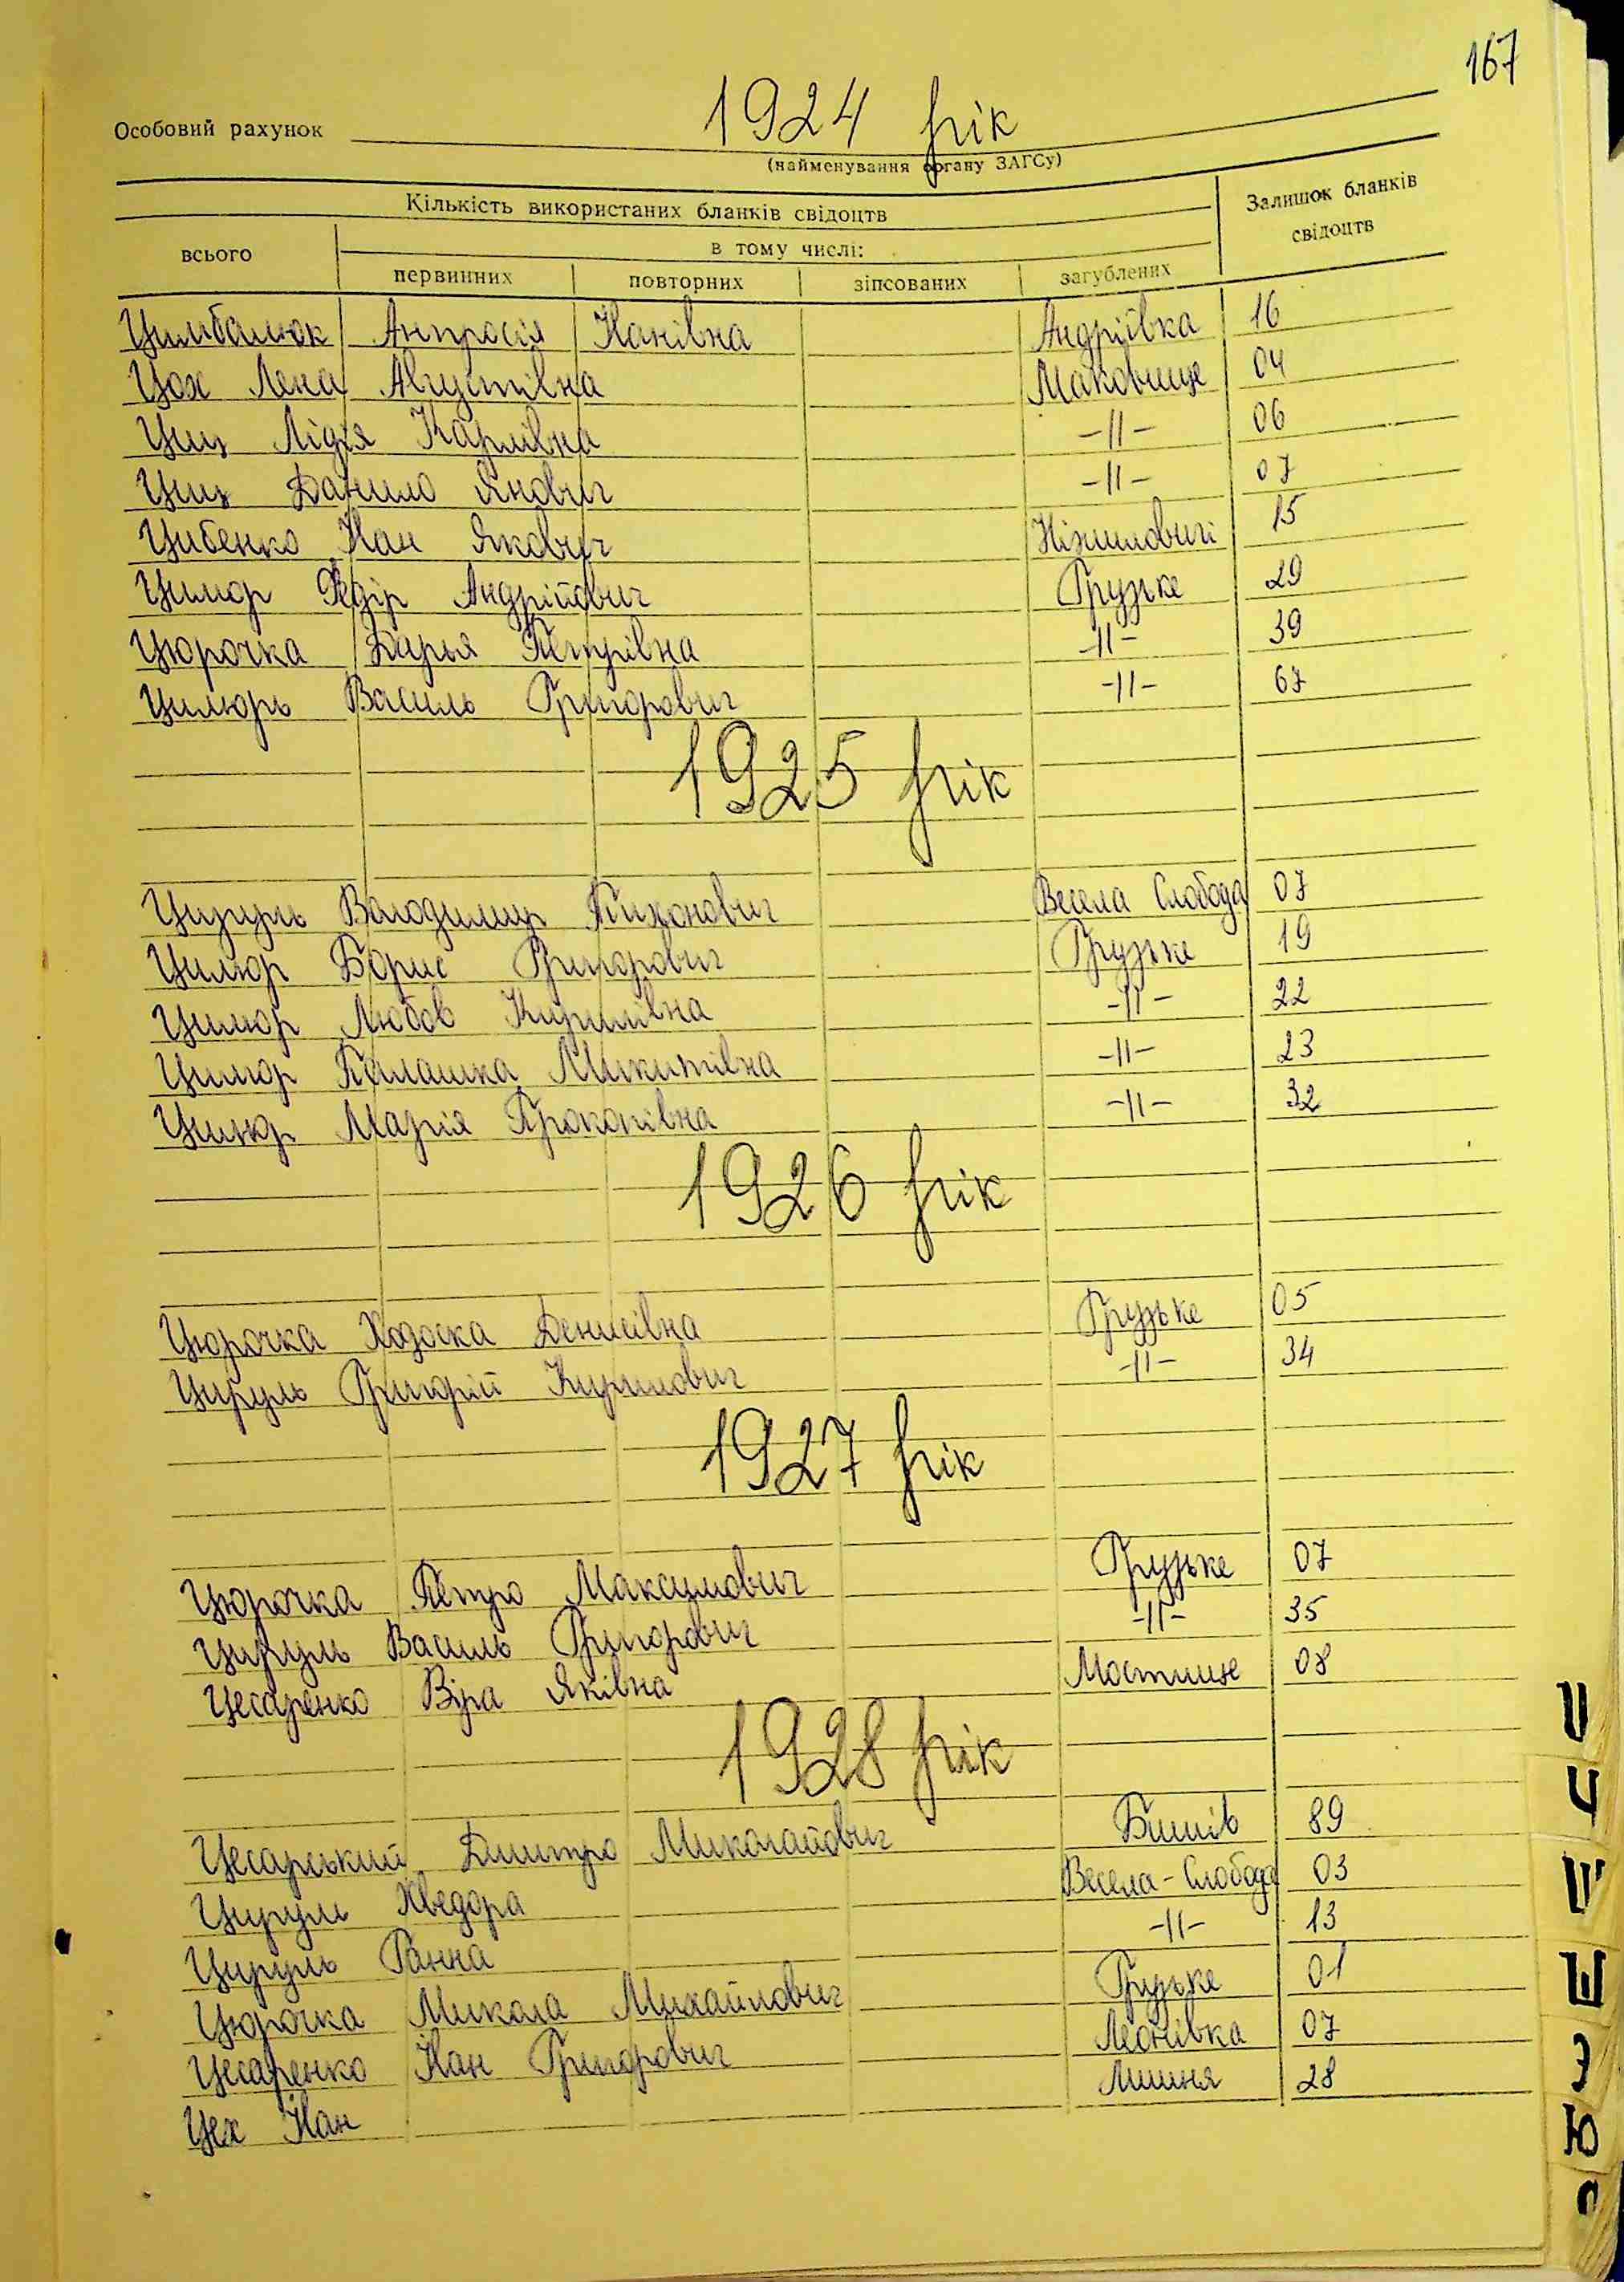 167
Особовий рахунок 1924 рік
(найменування органу ЗАГСу)
Кількість використаних бланків свідоцтв Залишок бланків свідоцтв
всього в тому числі:
первинних повторних зіпсованих загублених
Цимбалюк Анпросія Іванівна Андріївка 16
Цох Лена Августівна Маковище 04
Циц Лідія Карлівна -||- 06
Циц Данило Янович -||- 07
Цибенко Іван Якович Ніжиловичі 15
Цимор Федір Андрійович Грузьке 29
Цюрочка Дарья Петрівна -||- 39
Цилюрь Василь Григорович -||- 67
1925 рік
Цируль Володимир Тихонович Весела Слобода 07
Цилюр Борис Григорович Грузьке 19
Цилюр Любов Кирилівна -||- 22
Цилюр Палашка Микитівна -||- 23
Цилюр Марія Прокопівна -||- 32
1926 рік
Цюрочка Ходоска Денисівна Грузьке 05
Цируль Григорій Кирилович -||- 34
1927 рік
Цюрочка Петро Максимович Грузьке 07
Цируль Василь Григорович -||- 35
Цесаренко Віра Яківна Мостище 08
1928 рік
Цесарський Дмитро Миколайович Бишів 89
Цируль Хведора Весела-Слобода 03
Цируль Ганна -||- 13
Цюрочка Микола Михайлович Грузьке 01
Цесаренко Іван Григорович Леонівка 07
Цех Іван Лишня 28
Ц
Ч
Ш
Щ
Э
Ю